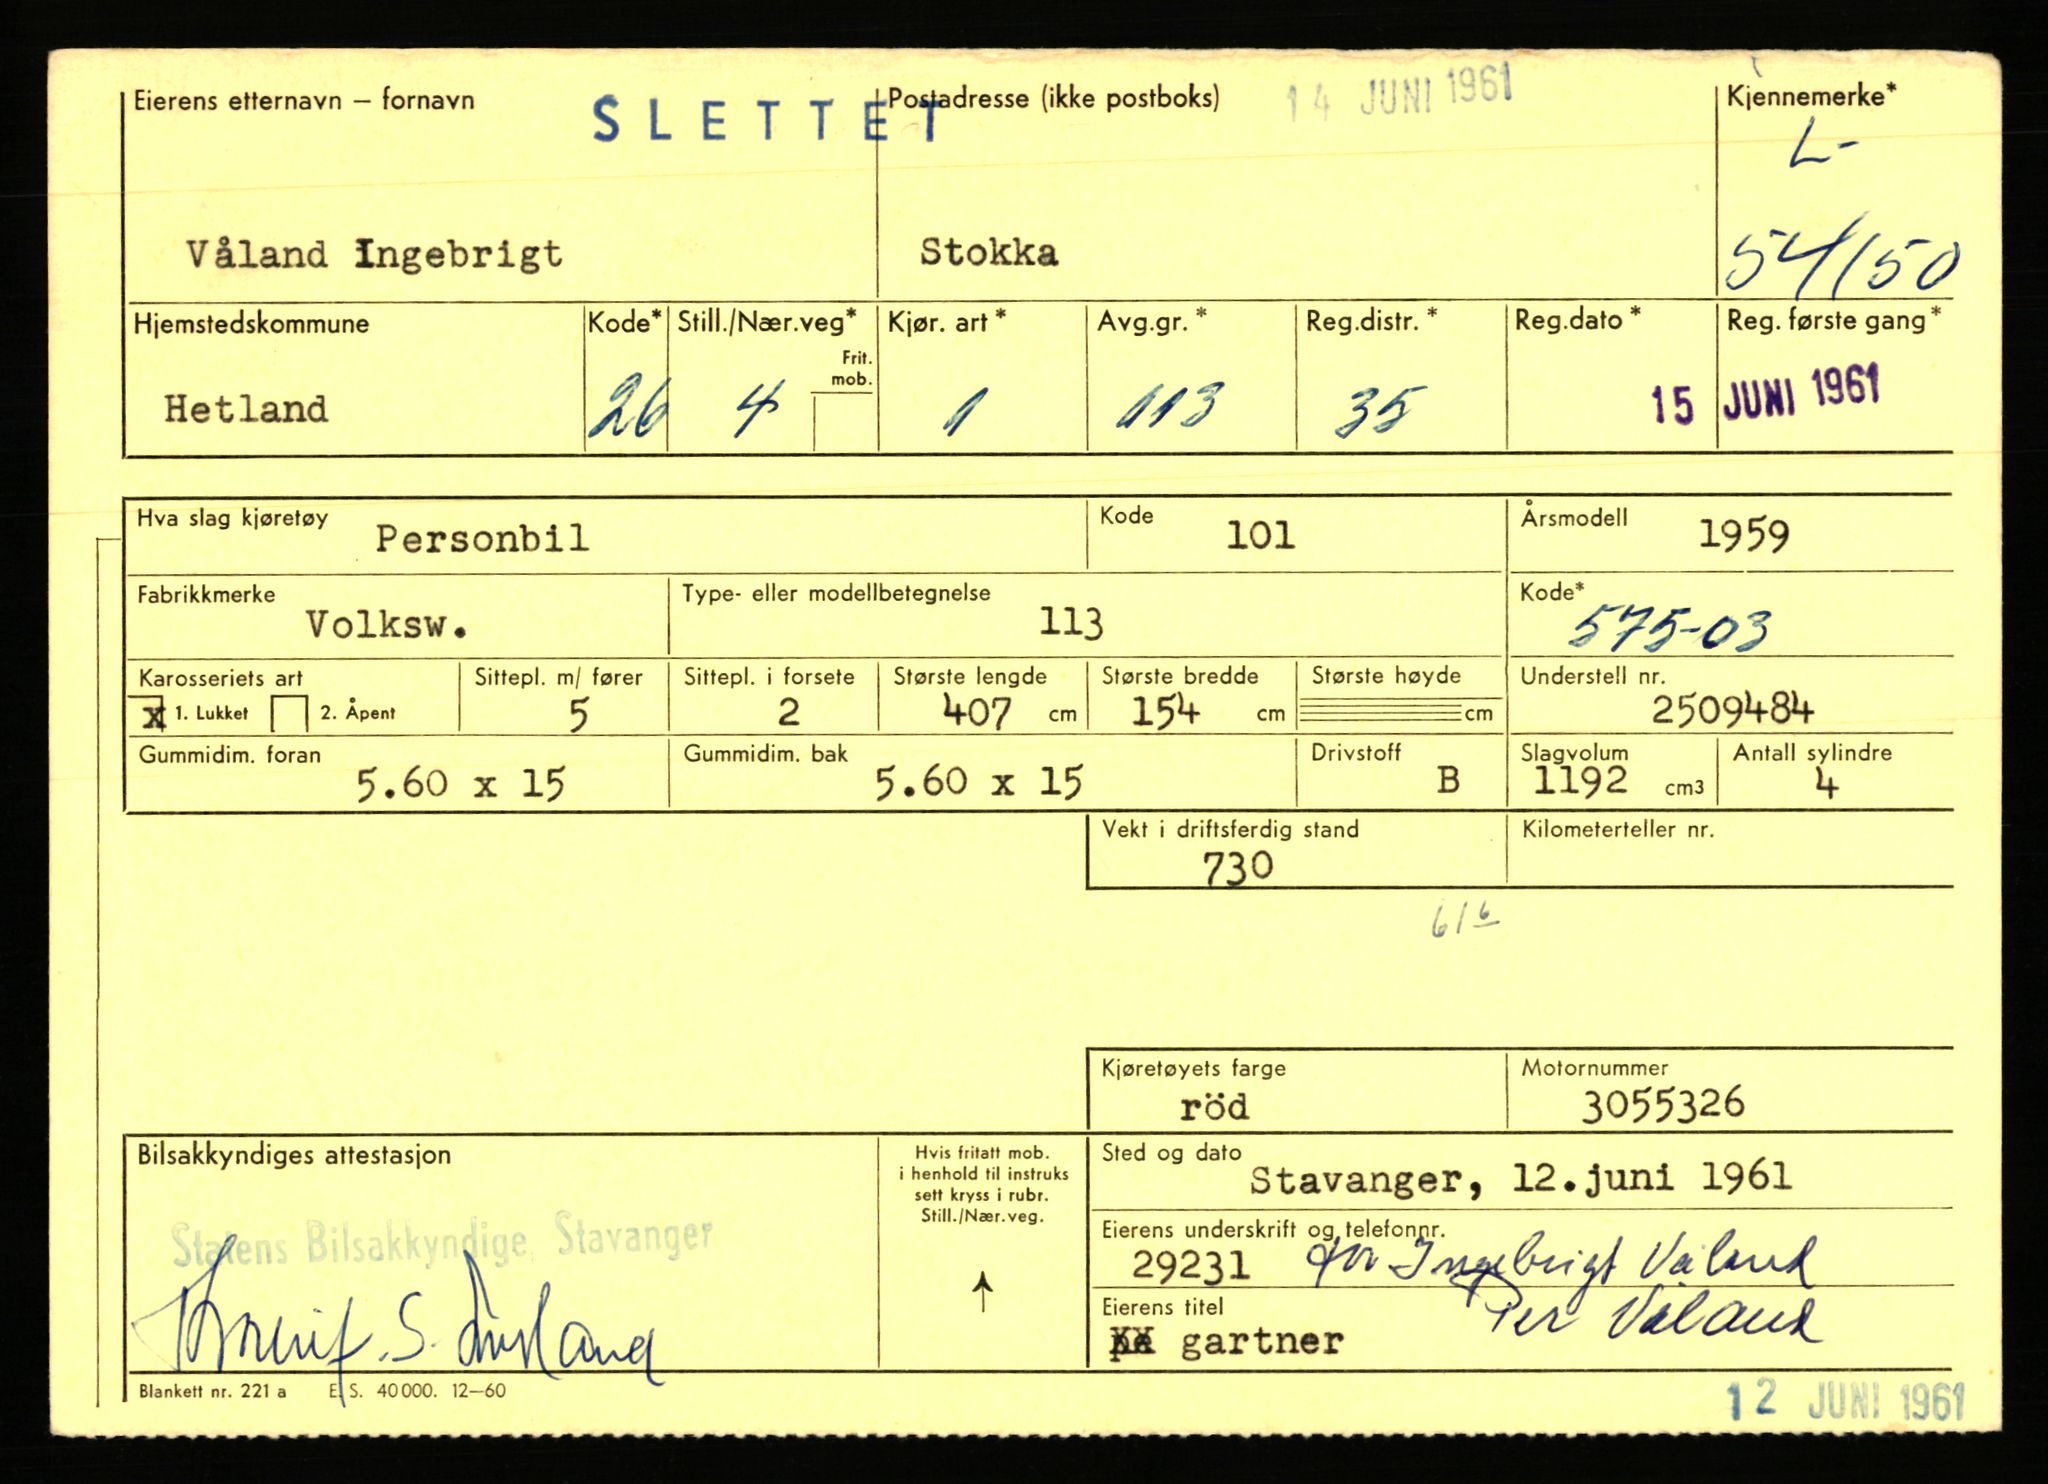 Eierens etternavn – fornavn SLETTET Postadresse (ikke postboks) 14 JUNI 1961 Kjennemerke*
L-
Våland Ingebrigt Stokka 54150
Hjemstedskommune Kode* Still./Nær.veg* Kjør. art* Avg.gr.* Reg.distr.* Reg.dato* Reg. første gang*
Frit.
mob.
Hetland 26 4 1 113 35 15 JUNI 1961
Hva slag kjøretøy Personbil Kode 101 Årsmodell 1959
Fabrikkmerke Volksw. Type- eller modellbetegnelse 113 Kode* 575-03
Karosseriets art Sittepl. m/ fører Sittepl. i forsete Største lengde Største bredde Største høyde Understell nr.
x 1. Lukket 2. Åpent 5 2 407 cm 154 cm cm 2509484
Gummidim. foran Gummidim. bak Drivstoff Slagvolum Antall sylindre
5.60 x 15 5.60 x 15 B 1192 cm3 4
Vekt i driftsferdig stand Kilometerteller nr.
730
61 6
Kjøretøyets farge Motornummer
röd 3055326
Bilsakkyndiges attestasjon
Statens Bilsakkyndige, Stavanger
Hvis fritatt mob.
i henhold til instruks
sett kryss i rubr.
Still./Nær.veg.
Sted og dato
Stavanger, 12.juni 1961
Eierens underskrift og telefonnr.
29231 Ingebrigt Våland
Eierens titel Per Våland
gartner
Blankett nr. 221 a E. S. 40000. 12–60
12 JUNI 1961